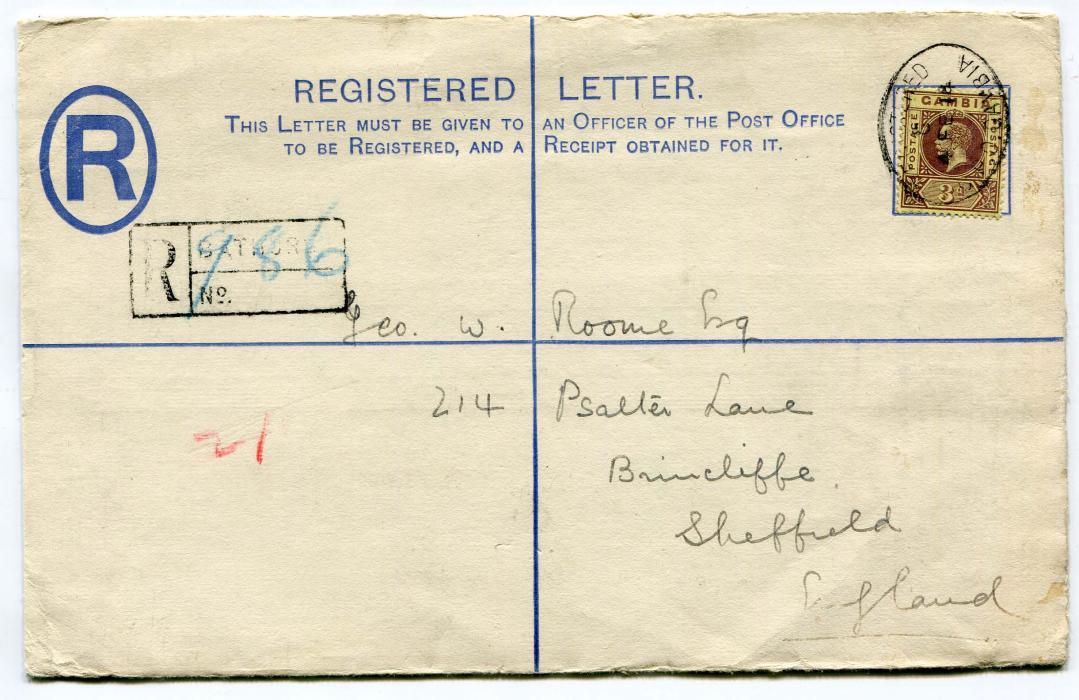 REGISTERED LETTER.
THIS LETTER MUST BE GIVEN TO AN OFFICER OF THE POST OFFICE
TO BE REGISTERED, AND A RECEIPT OBTAINED FOR IT.
R
GAMBIA
POSTAGE
POSTAGE
3d
R
BATHURST
No.
986
Geo. W. Roome Esq
214 Psalter Lane
Brincliffe
Sheffield
England
21